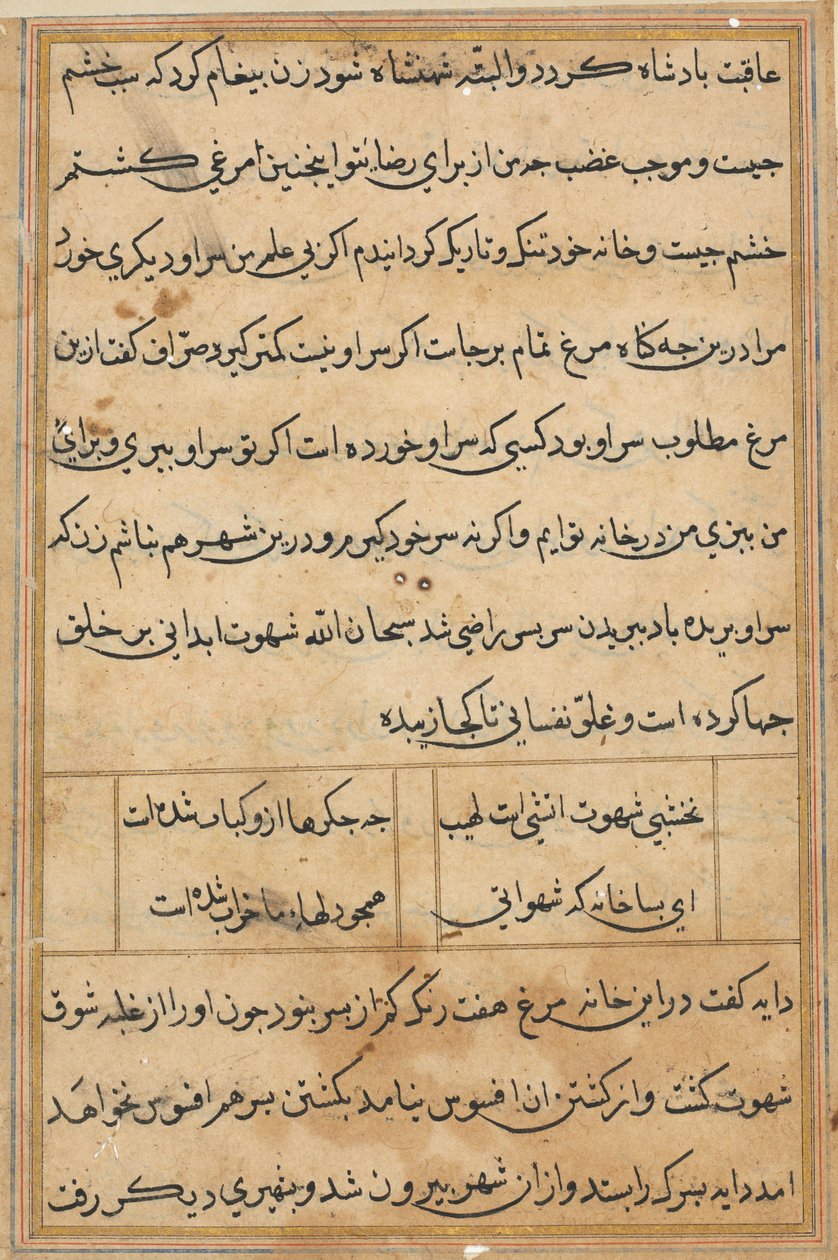 عاقبت بادشاه کردد والبتّه شهنشاه شود زن بیغام کرد که سبب خشم
جیست و موجب غضب جه من از برای رضایتو اینجنین مرغی کشتم
خشم جیست و خانه خود تنک و تاریک کردانیدم اکر بی علم من سر او دیکری خورد
مرا درین جه کناه مرغ تمام بر جاست اکر سر او نیست کمتر کیر صرّاف کفت ازین
مرغ مطلوب سر او بود کسی که سر او خورده است اکر تو سر او ببری و برای
من ببزی من در خانه تو ایم و اکرنه سر خود کیرم و درین شهر هم نباشم زن که
سر او بریده باد ببریدن سر بسر راضی شد سبحان الله شهوت ابدانی بر خلق
جها کرده است و غلوّ نفسانی تا کجا
نخشبی شهوت اتشی است لهیب
جه جکرها ازو کباب شده است
ای بسا خانه که شهواتی
همجو دلهاء ما خراب شده است
دایه کفت در این خانه مرغ هفت رنک کم از بسر بنود جون او را از غلبه شوق
شهوت کشت و از کشتن ان افسوس نیامد بکشتن بسر هم افسوس نخواهد
امد دایه بسرک را بستد و ازان شهر بیرون شد و بشهری دیکر رفت